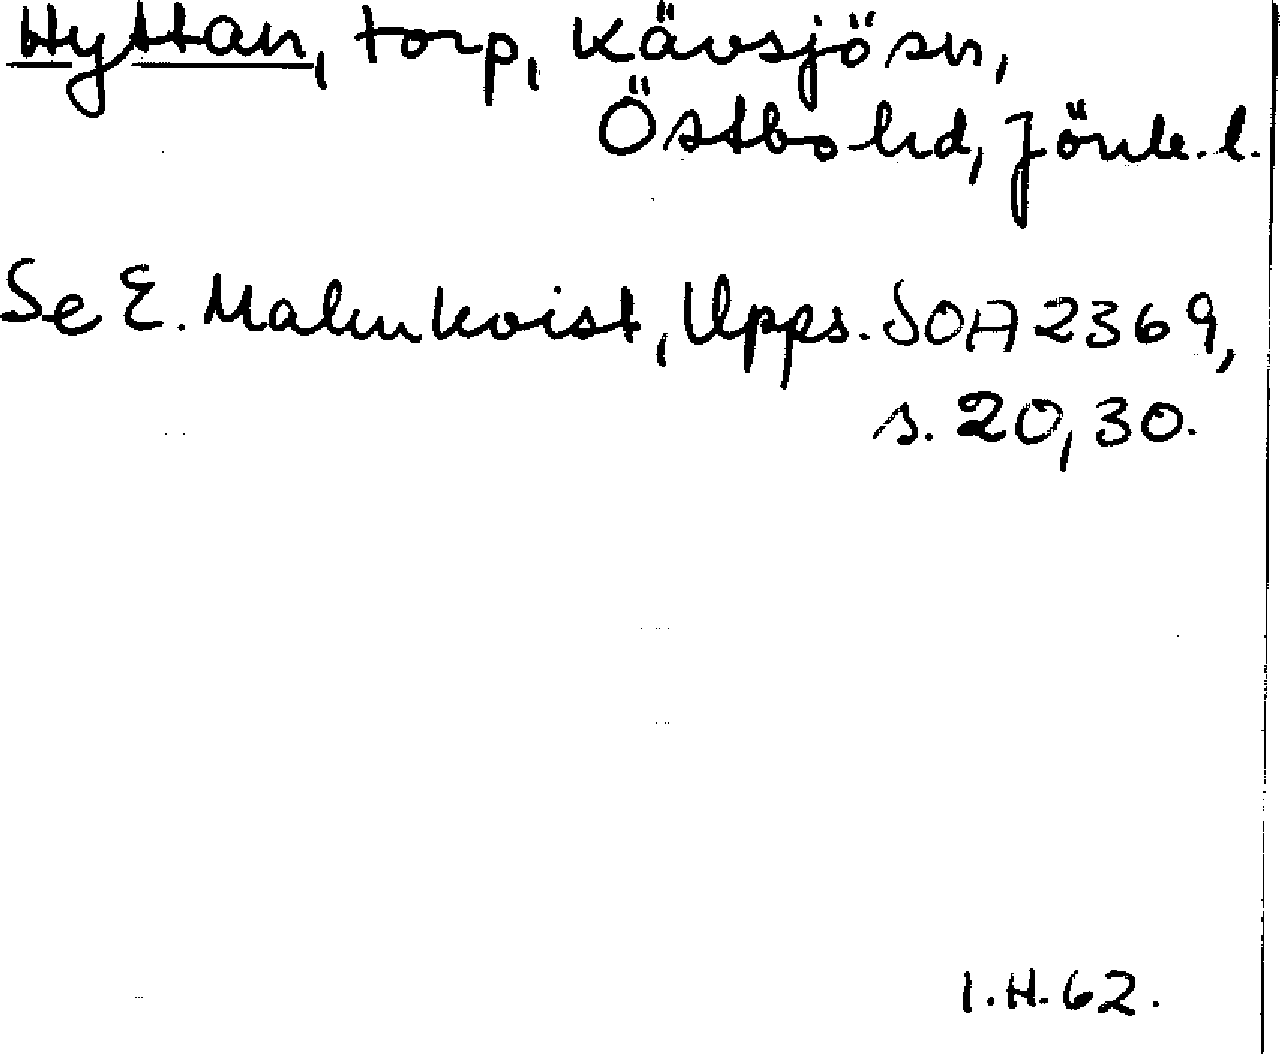 Hyttan, torp, Kävsjö sn,
Östbo hd, Jönk. l.
Se E. Malmkvist, Upps. SOA 2369,
s. 20, 30.
I.H. 62.